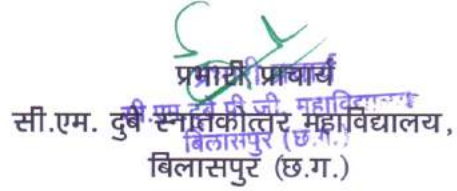 प्रभारी प्राचार्य
सी.एम. दुबे स्नातकोत्तर महाविद्यालय,
बिलासपुर (छ.ग.)
सी.एम. दुबे पी.जी. महाविद्यालय
बिलासपुर (छ.ग.)